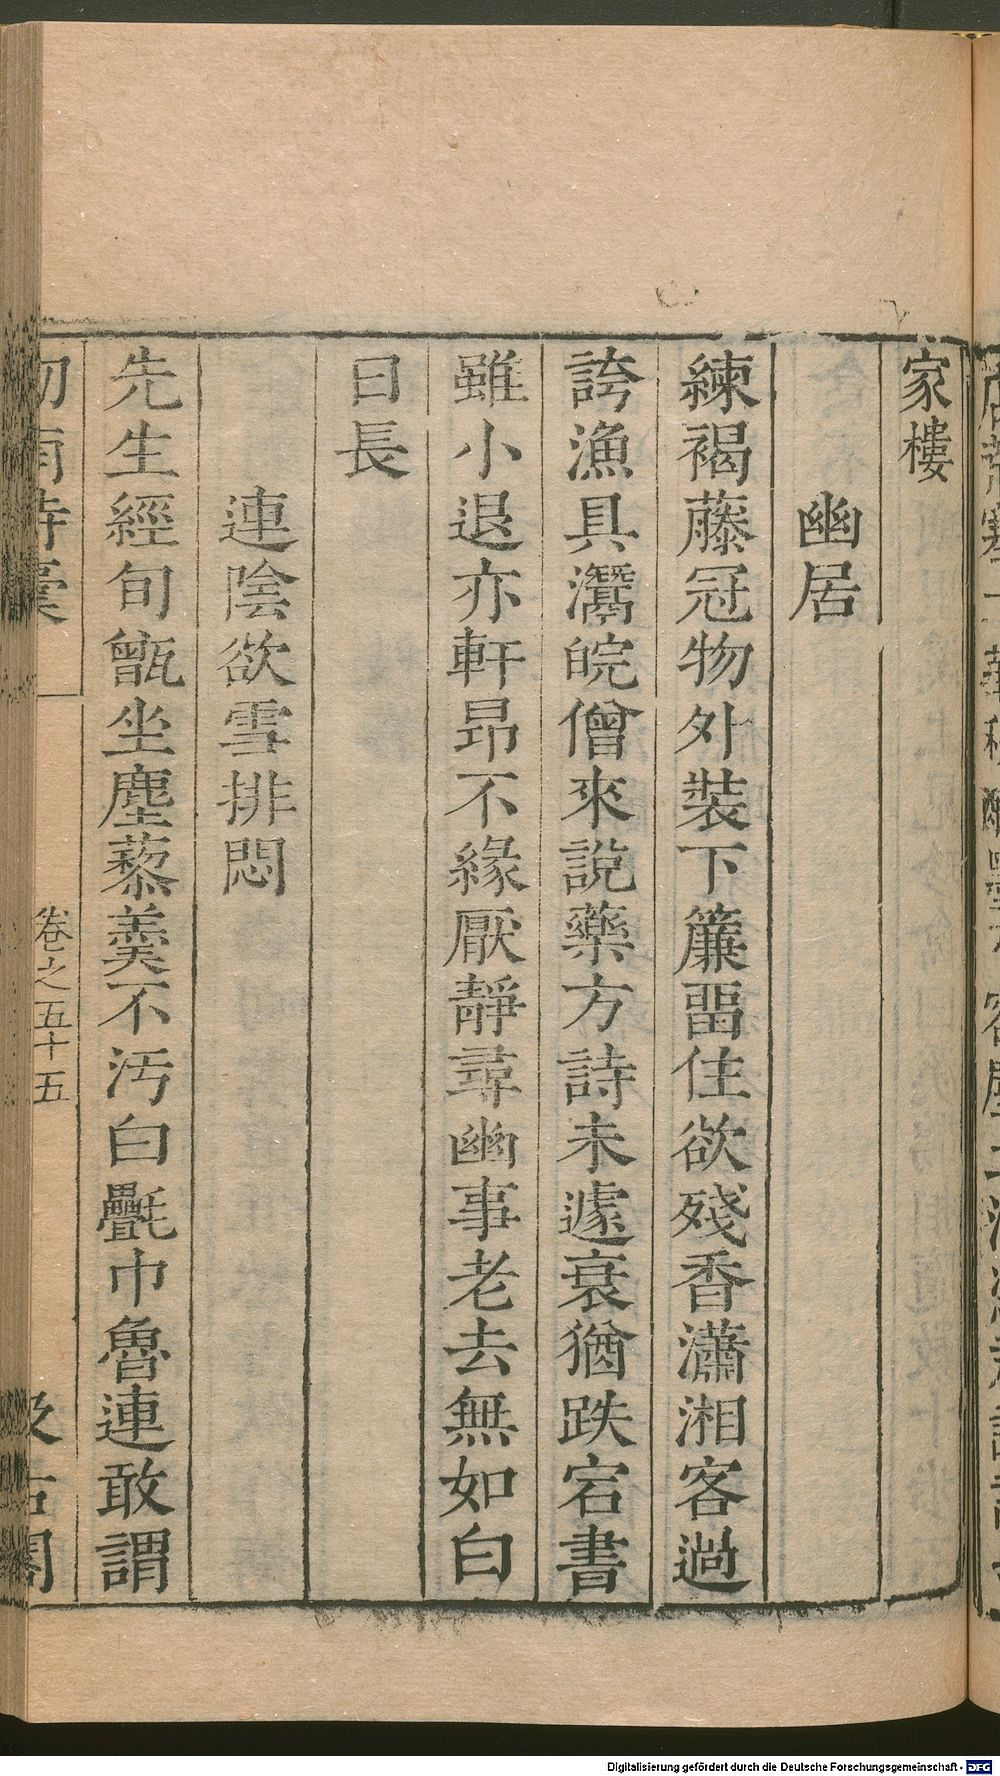 家樓
幽居
練褐藤冠物外裝下簾畱住欲殘香瀟湘客過
誇漁具灊皖僧來說藥方詩未遽衰猶跌宕書
雖小退亦軒昂不緣厭靜尋幽事老去無如白
日長
連陰欲雪排悶
先生經旬甑坐塵藜羹不汚白㲲巾魯連敢謂
卷之五十五
Digitalisierung gefördert durch die Deutsche Forschungsgemeinschaft - DFG